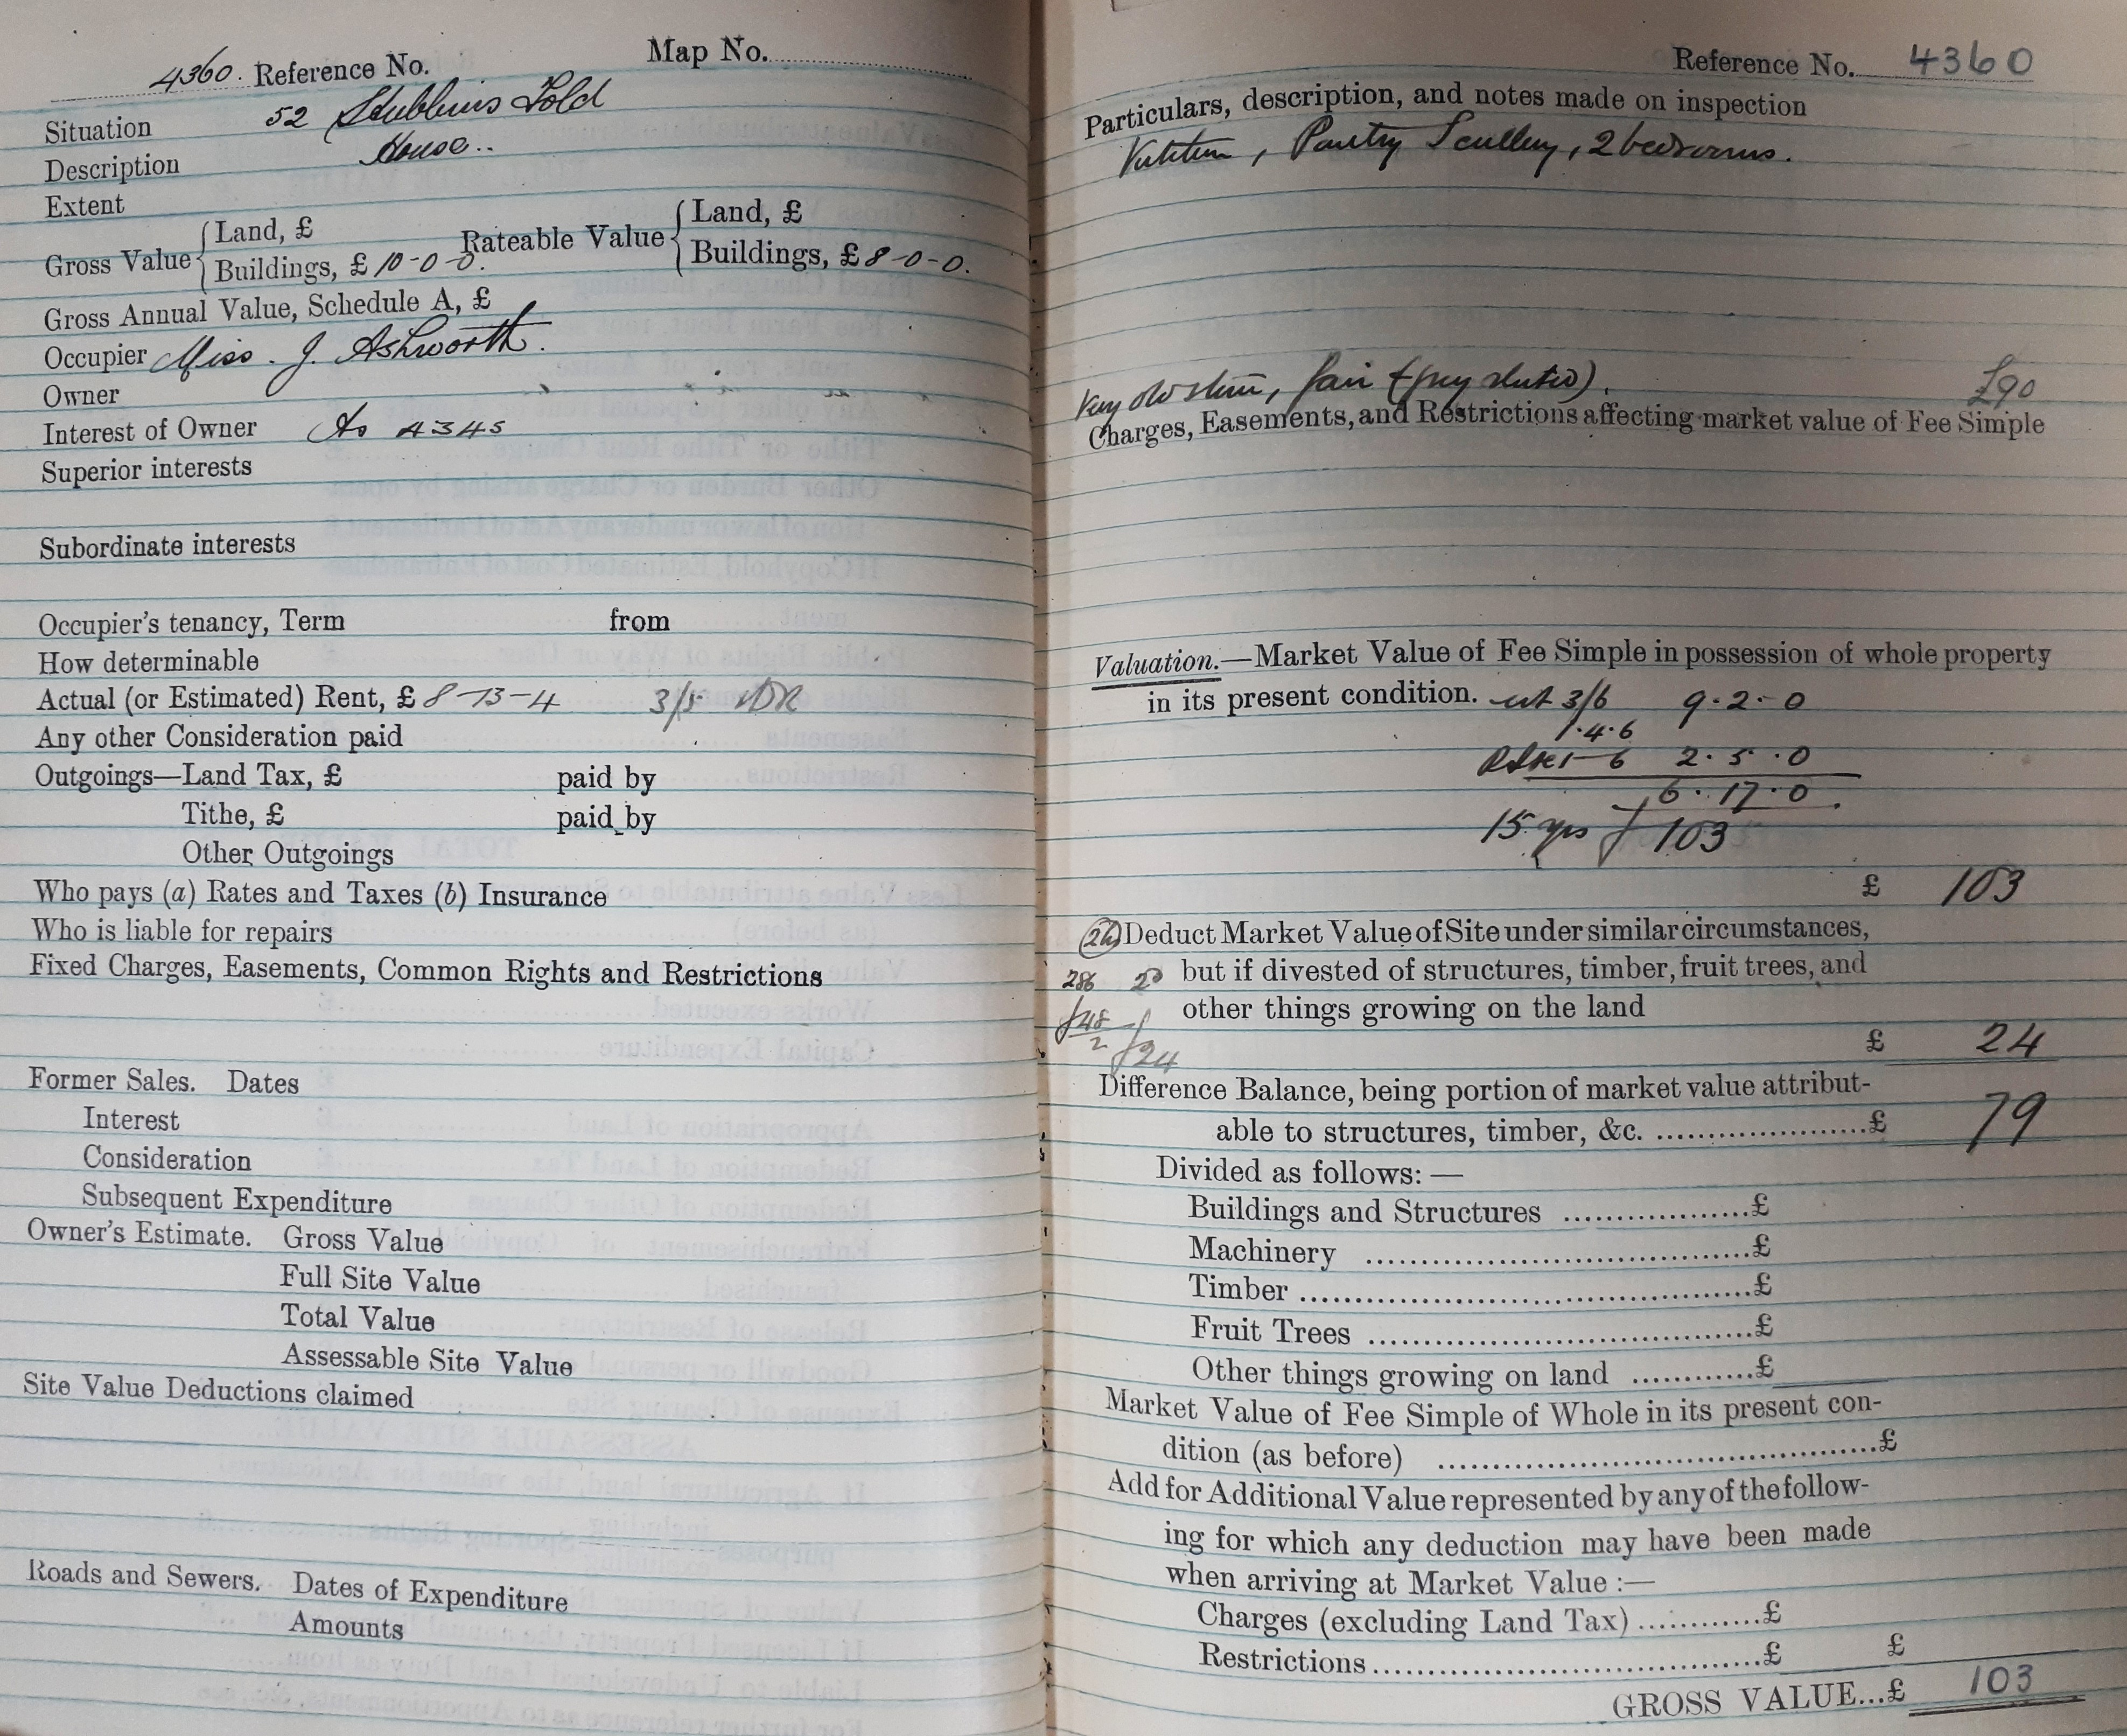 4360. Reference No. Map No.
Situation 52 Stubbins Fold
Description House..
Extent
Gross Value { Land, £
Buildings, £ 10-0-0. Rateable Value { Land, £
Buildings, £ 8-0-0.
Gross Annual Value, Schedule A, £
Occupier Miss. J. Ashworth.
Owner " " "
Interest of Owner As 4345
Superior interests
Subordinate interests
Occupier's tenancy, Term from
How determinable
Actual (or Estimated) Rent, £ 8-13-4 3/5
Any other Consideration paid
Outgoings—Land Tax, £ paid by
Tithe, £ paid by
Other Outgoings
Who pays (a) Rates and Taxes (b) Insurance
Who is liable for repairs
Fixed Charges, Easements, Common Rights and Restrictions
Former Sales. Dates
Interest
Consideration
Subsequent Expenditure
Owner's Estimate. Gross Value
Full Site Value
Total Value
Assessable Site Value
Site Value Deductions claimed
Roads and Sewers. Dates of Expenditure
Amounts
Reference No. 4360
Particulars, description, and notes made on inspection
Kitchen, Pantry Scullery, 2 bedrooms.
Very old stone, fair (grey slated). £90
Charges, Easements, and Restrictions affecting market value of Fee Simple
Valuation.—Market Value of Fee Simple in possession of whole property
in its present condition. 3/6 9.2.0
1.4.6
6 2.5.0
6.17.0.
15 yrs £ 103
£ 103
Deduct Market Value of Site under similar circumstances,
286 but if divested of structures, timber, fruit trees, and
other things growing on the land
£48/2 £24
£ 24
Difference Balance, being portion of market value attribut-
able to structures, timber, &c. ....................£ 79
Divided as follows: —
Buildings and Structures ..................£
Machinery .....................................£
Timber ............................................£
Fruit Trees .....................................£
Other things growing on land ............£
Market Value of Fee Simple of Whole in its present con-
dition (as before) ...........................................£
Add for Additional Value represented by any of the follow-
ing for which any deduction may have been made
when arriving at Market Value :—
Charges (excluding Land Tax) ............£
Restrictions.....................................£ £
GROSS VALUE...£ 103